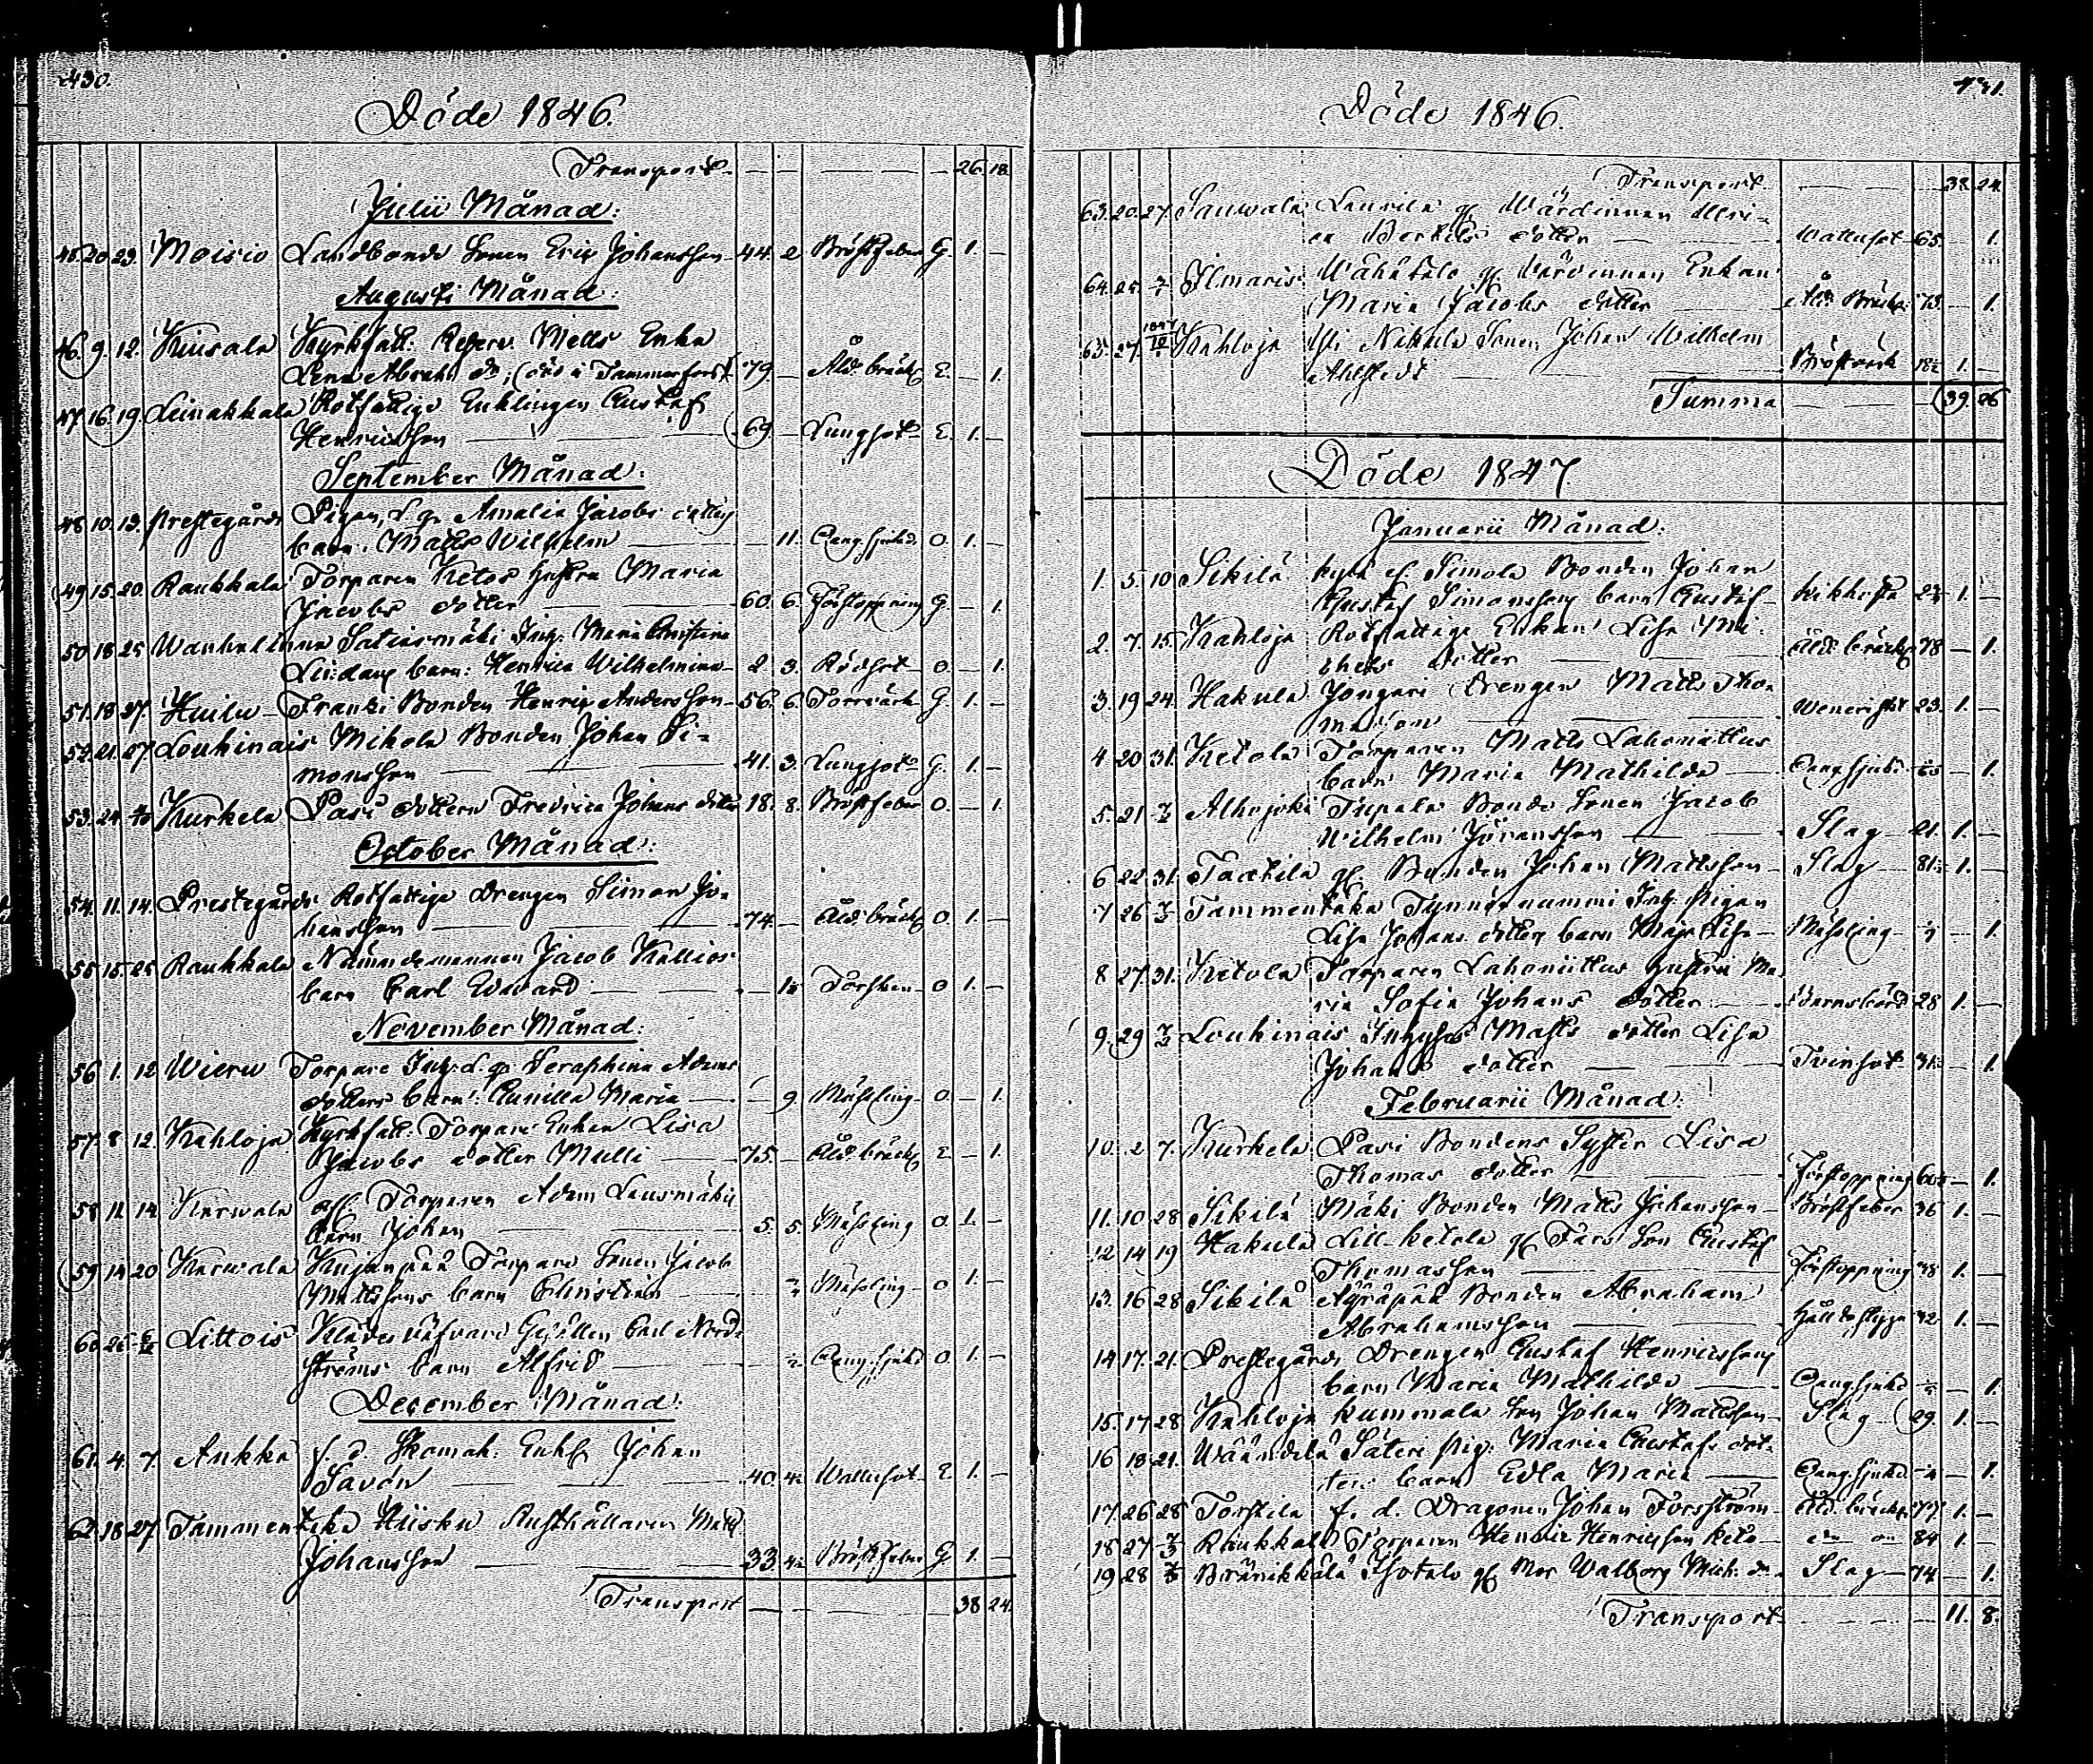 430.
Döde 1846.
Transport 26. 18.
Julii Månad.
45. 20. 23. Moisio Landbonde Sonen Eric Johansson 44. 2 Bröstfeber G. 1. —
Augusti Månad.
46. 9. 12. Kiusala Kyrkfatt. Reserv. Matts Enka
Lena Abrah. dr, (död i Tammerfors) 79 — Åld. bräckl. E. — 1.
47. 16. 19. Leinakkala Rotfattige Enklingen Gustaf
Henricsson 69. — Lungsot E. 1. —
September Månad.
48. 10. 13. Prestegård Pigan, d. qv. Amalia Jacobs dotters
barn. Matts Wilhelm — 11. Oang. sjukd. O. 1. —
49. 15. 20. Raukkala Torparen Ketos hustru Maria
Jacobs dotter 60. 6. Förstoppning G. — 1.
50. 18. 25 Wanhalinna Inh. Maria Christina
barn: Henrica Wilhelmina 2. 3. Rödsot O. — 1.
51. 18 27. Huilu Franki Bonden Henric Andersson 56. 6. Torrvärk G. 1. —
52. 21. 27 Loukinais Mikola Bonden Johan Si-
monsson 41. 3. Lungsot G. 1. —
53. 24. Kurkela Pasi dottern Fredrica Johans dotter 18. 8. Bröstfeber O. — 1.
October Månad.
54. 11. 14. Prestegårds Rotfattige Drengen Simon Jo-
hansson 74. — Åld. bräckl. O. 1. —
55. 15. 25 Raukkala Nämndemannen Jacob Kallios
barn Carl Edvard Torsken O 1. —
November Månad.
56 1. 12 Wieru Torpare Inh. d. qv. Seraphina Adams
dotters barn. Gunilla Maria — 9 Mässling O. — 1.
57. 8 12. Kahloja Kyrkfatt. Torpare Enkan Lisa
Jacobs dotter Mulli 75. — Åld. bräckl. E — 1.
58 11. 14 Karwala Torparen Adam
barn Johan 5. 5. Mässling O. 1. —
59 14 20 Karwala Kujanpää Torpare Sonen Jacob
Mattssons barn Christian Mässling O 1. —
60 25 Littois Klädesväfvare Gesällen Carl Nord-
ströms barn Alfrid Oang. sjukd O 1. —
December Månad.
61. 4. 7. Aukka f. d. Skomak. Enkl. Johan
Savón 40. Wattusot E. 1. —
62. 18 27 Tammentaka Hiisku Rusthållaren Matts
Johansson 33 Bröstfeber G 1. —
Transport 38 24.
431.
Döde 1846.
Transport 38. 24.
63. 20. 27. Sauwala Laurila qf. Wärdinnan Ulri-
ca Bertils dotter Wattusot 65. — 1.
64. 25. Ilmaris Wähätalo qf. Wärdinnan Enkan
Maria Jacobs dotter Åld. Bräckl. 73. — 1.
65. 27. 1847 Kahloja Yli Nakula Sonen Johan Wilhelm
Ahlstedt Bröstvärk 1. —
Summa 39. 26
Döde 1847.
Januarii Månad.
1. 5. 10 Sikilä Simola Bonden Johan
Gustaf Simonsson barn Gustaf Kikhosta 1. —
2. 7. 15. Kahloja Rotfattige Enkan Lisa Mi-
chels dotter Åld. bräckl. 78 — 1.
3. 19 24. Hakula Jongari Drengen Matts Tho-
masson Venerisk 23. 1. —
4 20 31. Ketola Torparen Matts Lahoniittus
barn Maria Mathilda Oang. sjukd. — 1.
5. 21 Alhojoki Tupala Bonde Sonen Jacob
Wilhelm Göransson Slag 21. 1. —
6 22 31. Taatila qf. Bonden Johan Mattsson Slag 81 1. —
7 26 Tammentaka Inh. Pigan
Lisa Johans dotters barn Maja Lisa Mässling — 1.
8. 27. 31. Ketola Torparen Lahoniittus hustru Ma-
ria Sofia Johans dotter Barnsbörd 28 1. —
9. 29 Loukinais Inhyses Matts dotter Lisa
Johans dotter Tvinsot 31. — 1.
Februarii Månad.
10. 2 7. Kurkela Pasi Bondens Syster Lisa
Thomas dotter Förstoppning — 1.
11. 10. 28 Sikilä Mäki Bonden Matts Johansson Bröstfeber 36 1. —
12 14 19 Hakula Lill-Ketola qf. Fars Son Gustaf
Thomasson Förstoppning 38 1. —
13. 16 28 Sikilä Äyräpää Bonden Abraham
Abrahamsson 42. 1. —
14 17. 21. Prestegårds Drengen Gustaf Henricssons
barn Maria Mathilda Oang. sjukd — 1.
15. 17 28 Kahloja Kummala Son Johan Mattsson Slag 29. 1. —
16 18 21. Wäändelä Säteri Pig. Maria Gustafs dot-
ters barn Edla Maria Oang. sjukd — 1.
17. 26 28 Torstila f. d. Dragonen Johan Forsström Åld. bräckl. 77. 1. —
18 27 Raukkala Torparen Henric Henricsson Keto do do 84 1. —
19 28 Bränikkälä Isotalo qf. Mor Walborg Mich. dr. Slag 74 — 1.
Transport 11. 8.